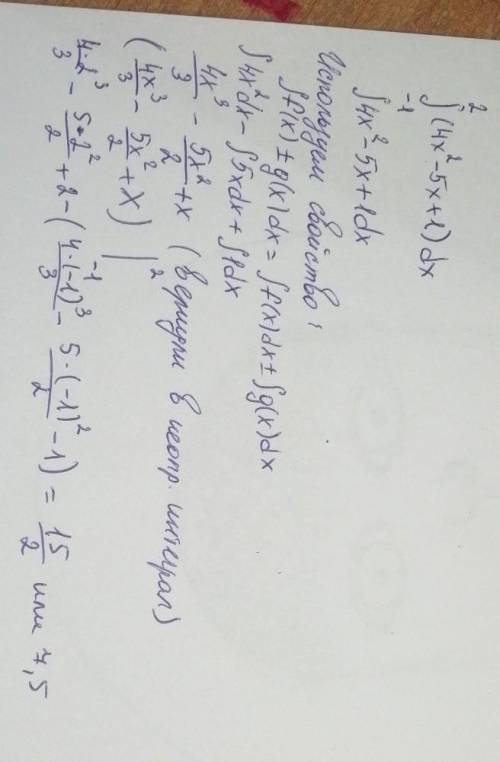 2
∫(4x²-5x+1)dx
-1
∫4x²-5x+1dx
Используем свойство:
∫f(x)±g(x)dx=∫f(x)dx±∫g(x)dx
∫4x²dx-∫5xdx+∫1dx
4x³/3 - 5x²/2 + x (вернули в неопр. интеграл)
(4x³/3 - 5x²/2 + x) |₋₁²
4·2³/3 - 5·2²/2 + 2 - (4·(-1)³/3 - 5·(-1)²/2 - 1) = 15/2 или 7,5